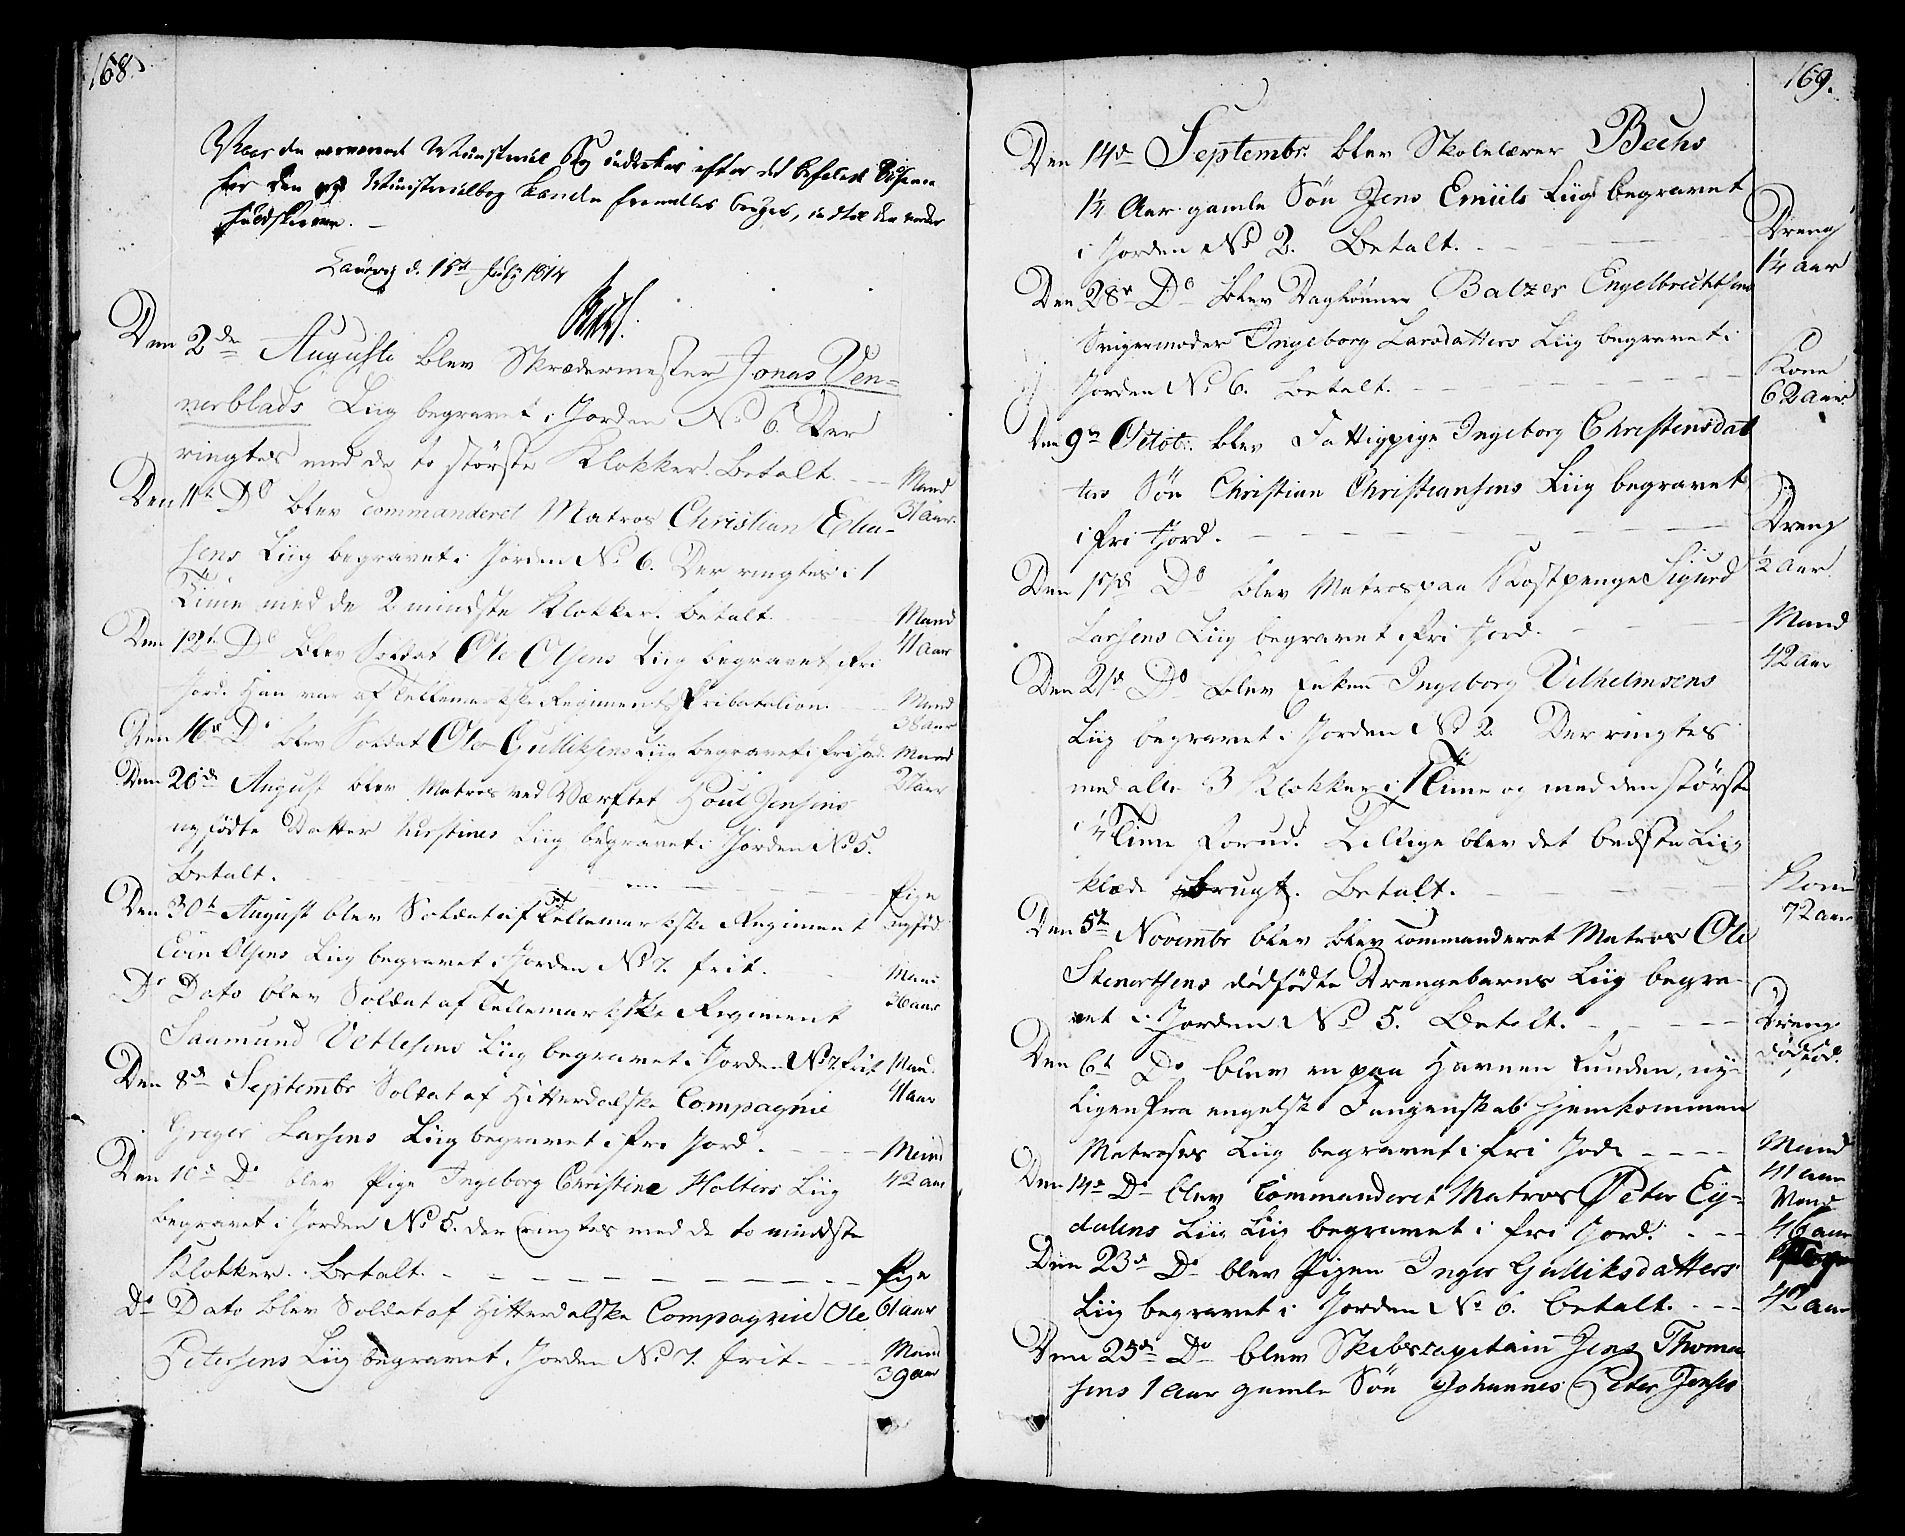 168.
for den Ministerialbog
Laurvig d. 15de July 1814
Den 2den Augusti blev Skrædermester Jonas Ven-
nerblads Liig begravet i Jorden No 6. Der
ringtes med de to største Klokker. Betalt. Mand
31 aar.
Den 11te Do blev commanderet Matros Christian Elia-
sens Liig begravet i Jorden No 6. Der ringtes i 1
Time med de 2 mindste Klokker. betalt. Mand
41 aar
Den 12te Do blev Soldat Ole Olsens Liig begravet i fri
Jord. Han var af Tellemarkske Regiments Mand
36 aar
Den 16de Do blev Soldat Ole Gulliksens Liig begravet i fri Jord. Mand
Den 26de August blev Matros ved Værftet Poul Jensens
nyfødte Datter Kirstines Liig begravet i Jorden No 5.
Betalt. Pige
nyfød.
Den 30te August blev Soldat af Tellemarkske Regiment
Even Olsens Liig begravet i Jorden No 7. frit. Mand
36 aar
Do Dato blev Soldat af Tellemarkske Regiment
Saamund Vetlesens Liig begravet i Jorden No 7. frit Mand
41 aar
Den 8de Septembr Soldat af Hitterdalske Compagnie
Greger Larsens Liig begravet i fri Jord. Mand
42 aar
Den 10de Do blev Pige Ingeborg Christine Holters Liig
begravet i Jorden No 5. der ringtes med de to mindste
Klokker. Betalt. Pige
61 aar
Do Dato blev Soldat af Hitterdalske Compagnie Ole
Petersens Liig begravet i Jorden No 7. frit. Mand
39 aar
169.
Den 14de Septembr. blev Skolelærer Bechs
1/4 Aar gamle Søn Jens Emiils Liig begravet
i Jorden No 2. Betalt. Dreng
1/4 aar
Den 28de Do blev Dagløner Balzer Engelbrechtsens
Svigermoder Ingeborg Larsdatters Liig begravet i
Jorden No 6. betalt. Kone
62 aar
Den 9de Octobr. blev Fattigpige Ingeborg Christensdat
ters Søn Christian Christiansens Liig begravet
i fri Jord. Dreng
1/2 aar.
Den 17de Do blev Matros paa Kostpenge Sigurd
Larsens Liig begravet i fri Jord. Mand
42 aar
Den 21de Do blev Enken Ingeborg Vilhelmsens
Liig begravet i Jorden No 2. Der ringtes
med alle 3 Klokker i 1 Time og med den største
i 1/4 Time forud. Tillige blev det bedste Liig
klæde brugt. Betalt. Kone
72 aar
Den 5te Novembr blev blev commanderet Matros Ole
Stenersens dødfødte Drengebarns Liig begra-
vet i Jorden No 5. Betalt. Dreng
dødfød.
Den 6te Do blev en paa Havnen funden, ny-
ligen fra engelsk Fangenskab hjemkommen
Matroses Liig begravet i fri Jord Mand
41 aar
Den 14de Do blev Commanderet Matros Peter Ey-
dalens Liig Liig begravet i fri Jord. Mand
46 aar
Den 23de Do blev Pigen Inger Gulliksdatters
Liig begravet i Jorden No 6. betalt. Pige
42 aar
Den 25de Do blev Skibscapitain Jens Thoma
sens 1 Aar gamle Søn Johannes Peter Jenses